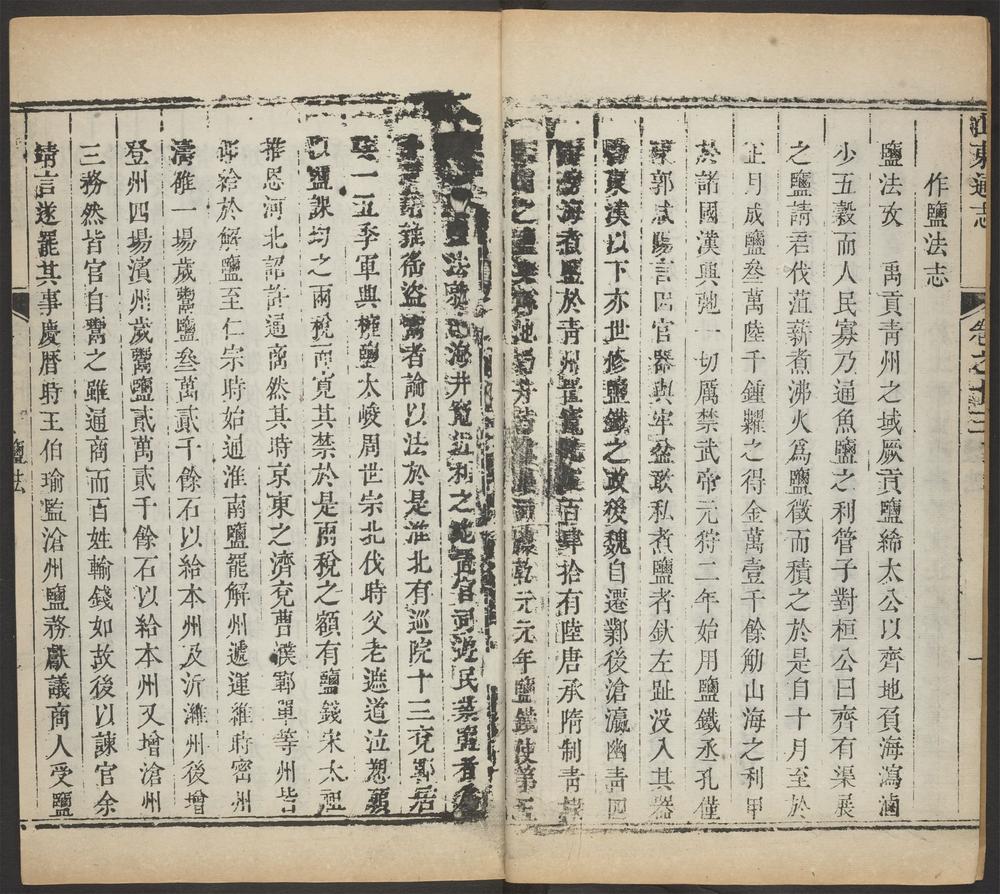 山東通志
卷之十三
一
作鹽法志
鹽法攷 禹貢青州之域厥貢鹽絺太公以齊地負海瀉滷
少五穀而人民寡乃通魚鹽之利管子對桓公曰齊有渠展
之鹽請君伐菹薪煮沸火爲鹽徵而積之於是自十月至於
正月成鹽叁萬陸千鍾糶之得金萬壹千餘觔山海之利甲
於諸國漢興弛一切厲禁武帝元狩二年始用鹽鐵丞孔僅
東郭咸陽言因官器與牢盆敢私煮鹽者釱左趾没入其器
東漢以下亦世修鹽鐵之政後魏自遷鄴後滄瀛幽青四
海煮鹽於青州置竈百肆拾有陸唐承隋制青棣
之鹽乾元元年鹽鐵使第五
法海井近利之地置官司遊民業鹽者爲
盜鬻者論以法於是淮北有巡院十三兖鄆居
一五季軍興榷鹽太峻周世宗北伐時父老遮道泣愬願
以鹽課均之兩稅而寬其禁於是兩稅之額有鹽錢宋太祖
推恩河北詔許通商然其時京東之濟兖曹濮鄆單等州皆
仰給於解鹽至仁宗時始通淮南鹽罷解州遞運維時密州
濤雒一場歲鬻鹽叁萬貳千餘石以給本州及沂濰州後增
登州四場濱州歲鬻鹽貳萬貳千餘石以給本州又增滄州
三務然皆官自鬻之雖通商而百姓輸錢如故後以諫官余
靖言遂罷其事慶曆時王伯瑜監滄州鹽務獻議商人受鹽
鹽法